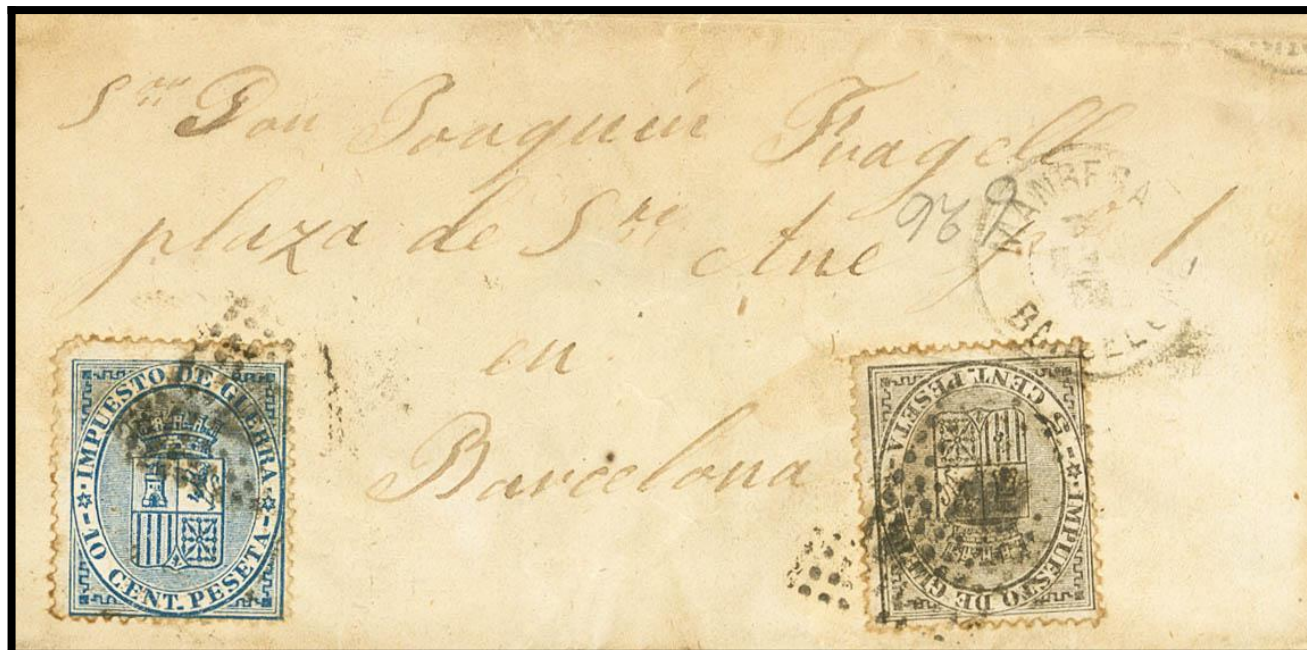 Sr Don Joaquin Fragell
plaza de Sta Ana nº 1,
en
Barcelona
MANRESA
BARCELO
· IMPUESTO DE GUERRA ·
10 CENT. PESETA
· IMPUESTO DE GUERRA ·
5 CENT. PESETA